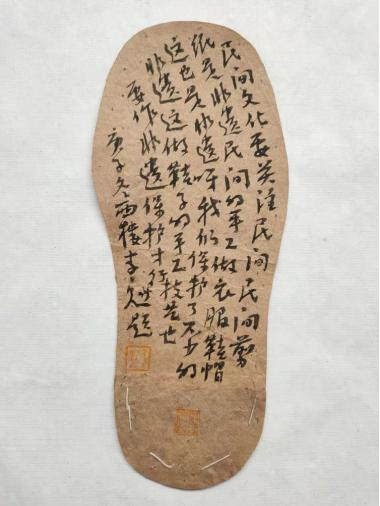 民间文化要关注民间民间剪
纸是非遗民间的手工做衣服鞋帽
这也是非遗呀我们保护了不少的
非遗这做鞋子的手工技艺也
要作非遗保护才行
庚子冬西楼李题